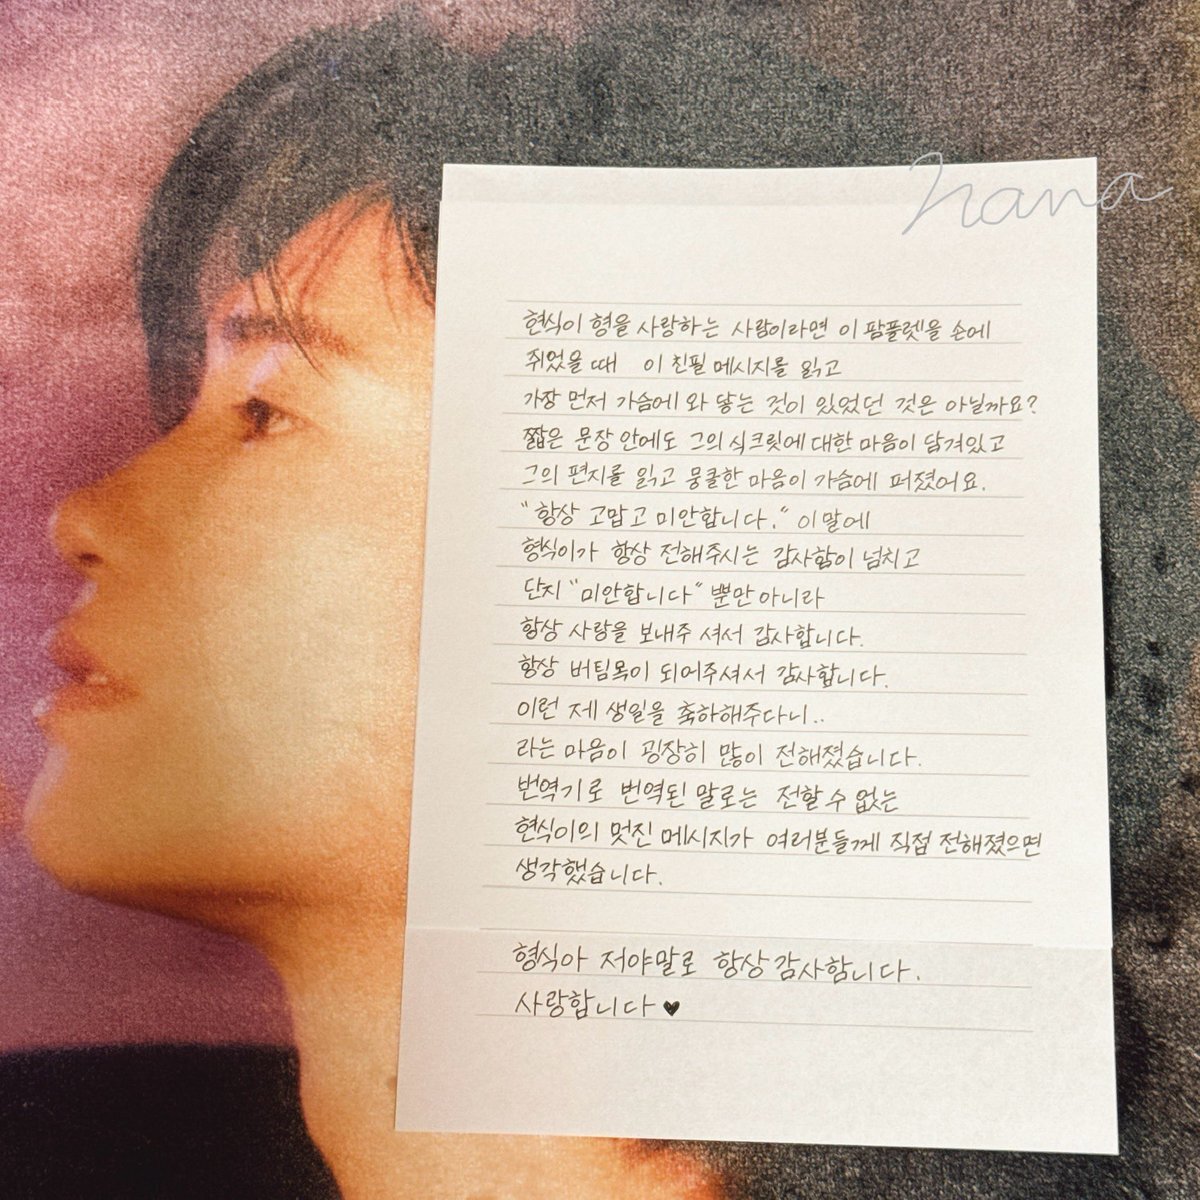 hana
현식이 형을 사랑하는 사람이라면 이 팜플렛을 손에
쥐었을 때 이 친필 메시지를 읽고
가장 먼저 가슴에 와 닿는 것이 있었던 것은 아닐까요?
짧은 문장 안에도 그의 식크릿에 대한 마음이 담겨있고
그의 편지를 읽고 뭉클한 마음이 가슴에 퍼졌어요.
"항상 고맙고 미안합니다." 이 말에
형식이가 항상 전해주시는 감사함이 넘치고
단지 "미안합니다" 뿐만 아니라
항상 사랑을 보내주 셔서 감사합니다.
항상 버팀목이 되어주셔서 감사합니다.
이런 제 생일을 축하해주다니..
라는 마음이 굉장히 많이 전해졌습니다.
번역기로 번역된 말로는 전할 수 없는
현식이의 멋진 메시지가 여러분들게 직접 전해졌으면
생각했습니다.
형식아 저야말로 항상 감사합니다.
사랑합니다 ♥